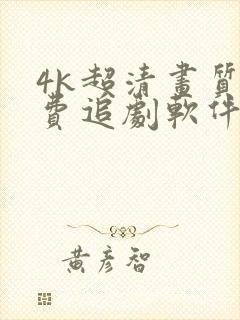 4k超清畫質
費追劇軟件
黃彥智